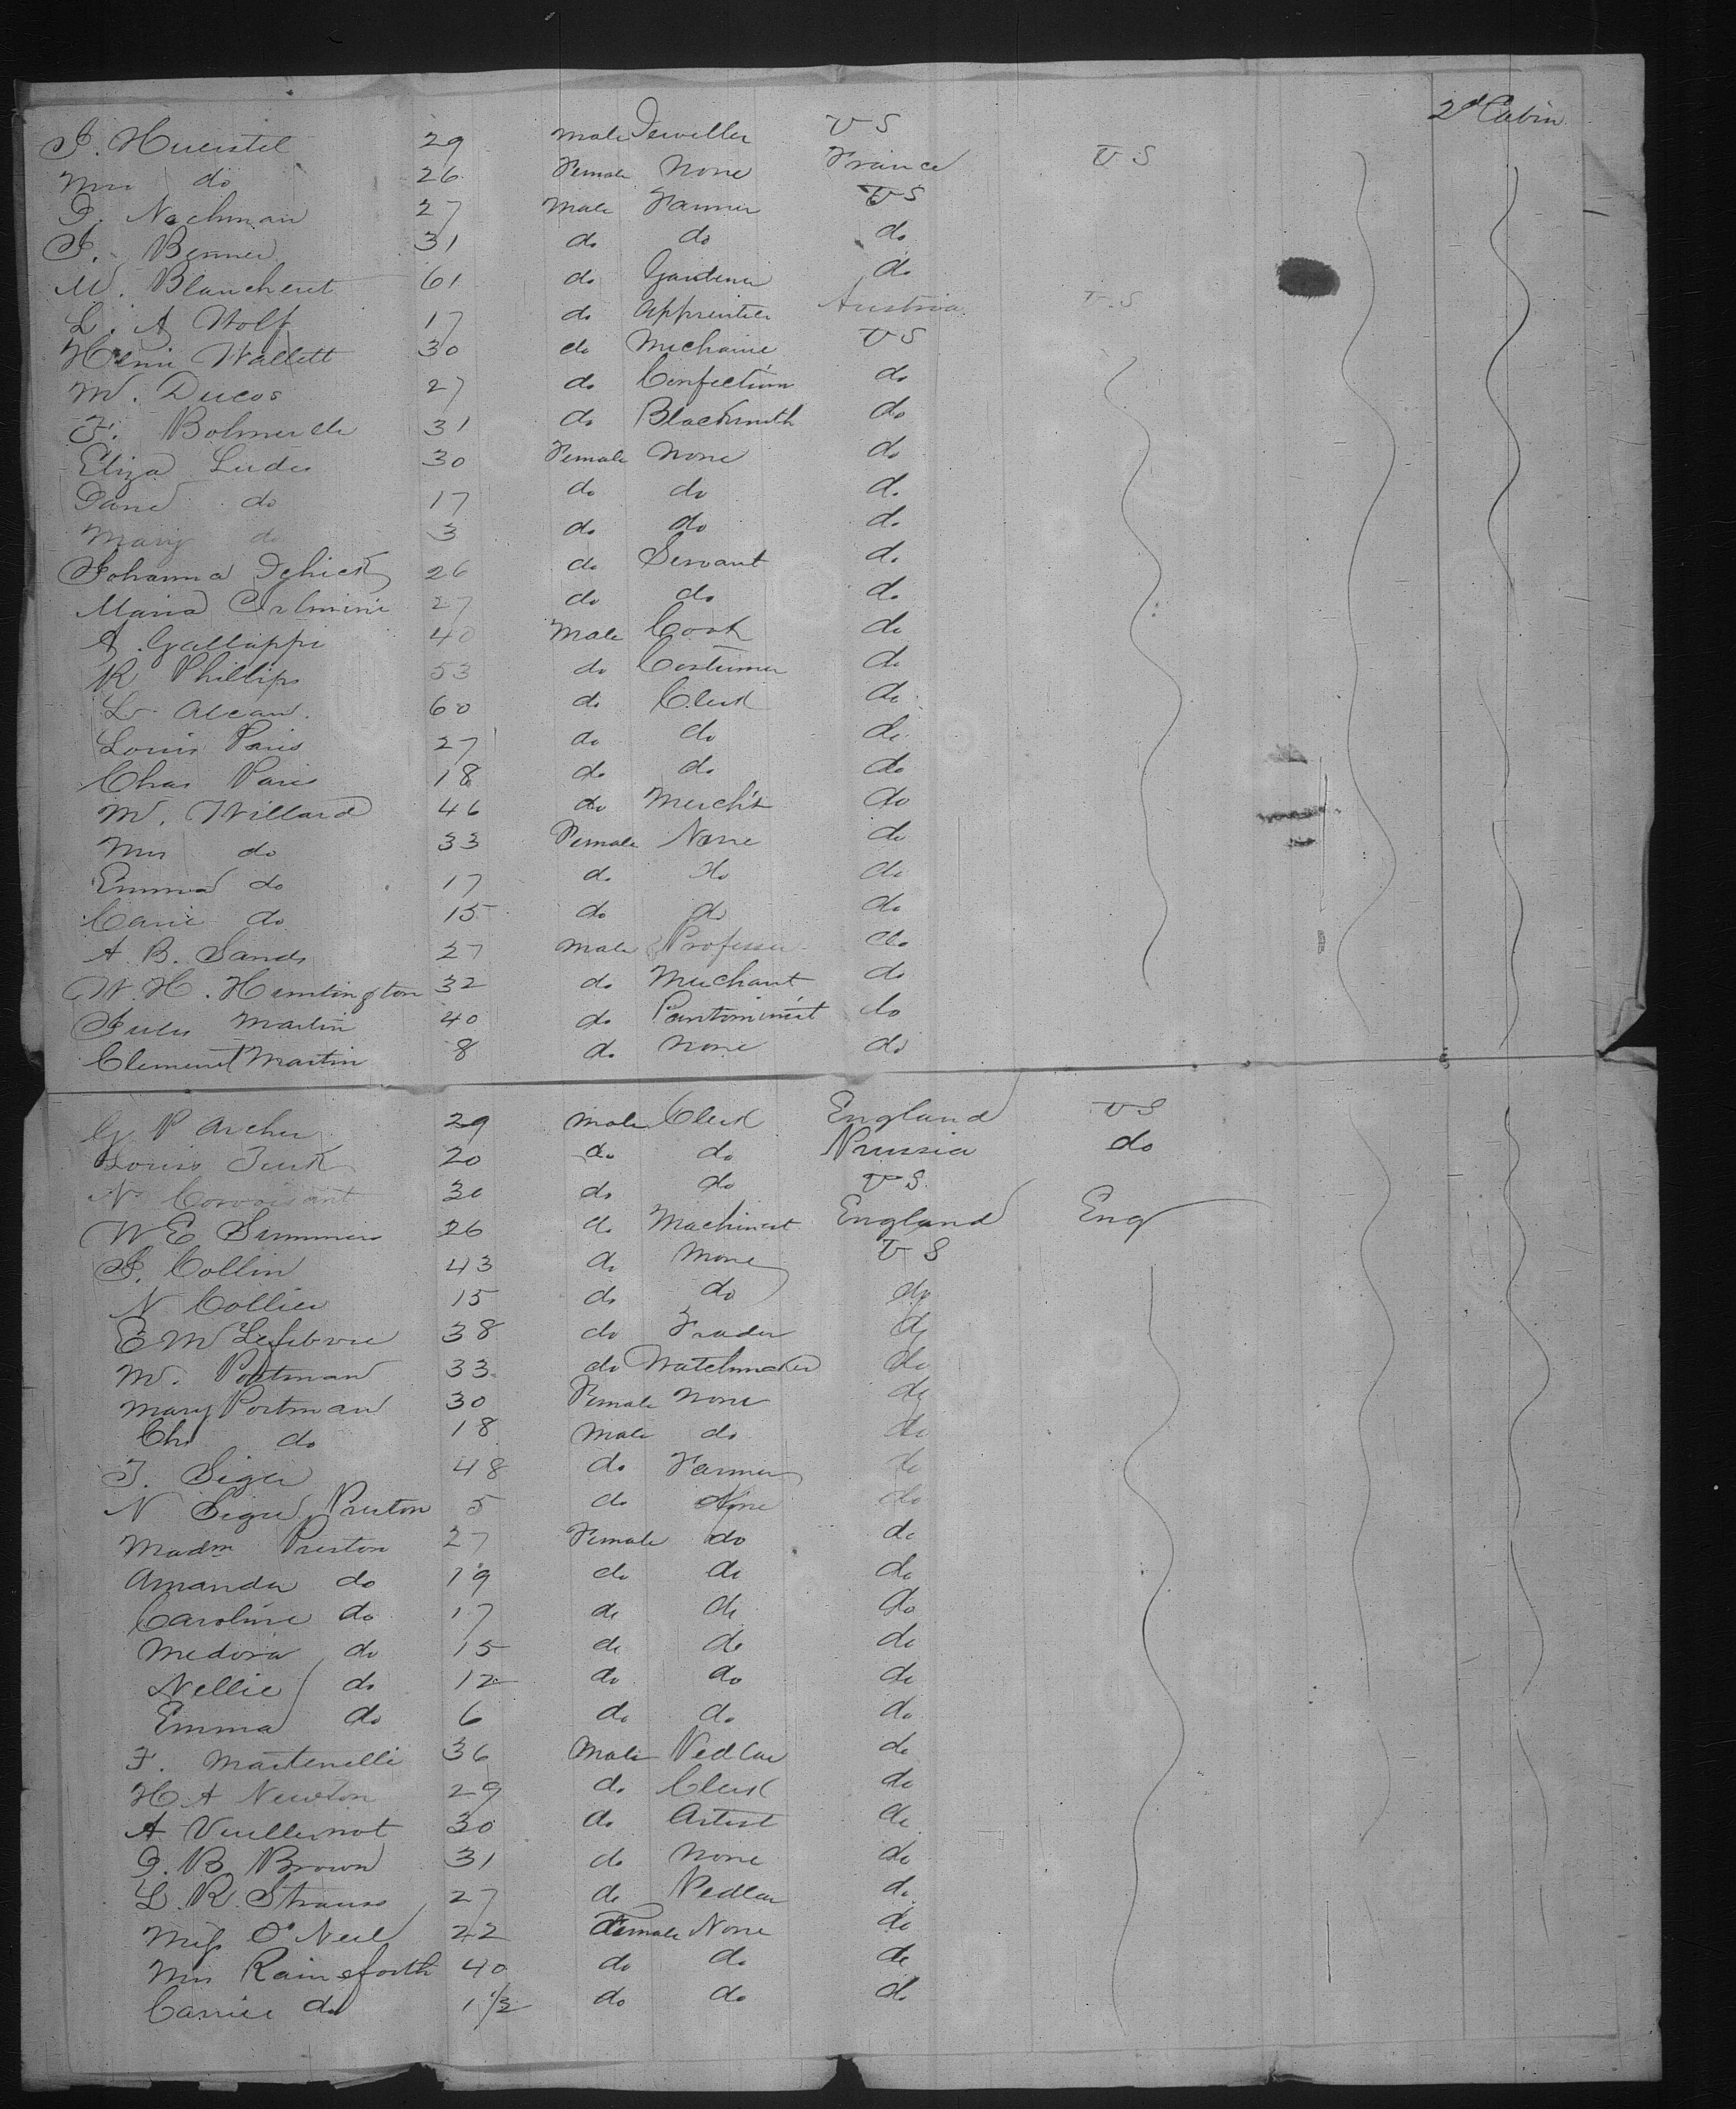 2d Cabin
J. Huerstel 29 Male Jeweller U S
Mrs do 26 Female None France U S
J. Nachman 27 Male Farmer U S
J. Benner 31 do do do
M. Blancheret 61 do Gardener do
L. A Wolf 17 do Apprentice Austria U.S
Henri Wallett 30 do Mechanic U S
M. Ducos 27 do Confection do
F. 31 do Blacksmith do
Eliza Ludes 30 Female None do
Jane do 17 do do do
Mary do 3 do do do
Johanna 26 do Servant do
Maria 27 do do do
A. Gallappi 40 Male Cook do
R Phillips 53 do Costumer do
L. Alcan. 60 do Clerk do
Louis Paris 27 do do do
Chas Paris 18 do do do
M. Willard 46 do Mercht do
Mrs do 33 Female None do
Emma do 17 do do do
Carrie do 15 do do do
A. B. Sands 27 Male Professor do
W. H. Huntington 32 do Merchant do
Jules Martin 40 do Pantomimist do
Clement Martin 8 do None do
G P Archer 29 Male Clerk England U S
Louis Turk 20 do do Prussia do
N. 30 do do U S.
W E Summers 26 do Machinist England Eng
J. Collin 43 do None U S
N Collier 15 do do do
E M Lefebvre 38 do Trader do
M. Portman 33 do Watchmaker do
Mary Portman 30 Female None do
Chs do 18 Male do do
J. Siger 48 do Farmer do
N Siger Preston 5 do None do
Madm Preston 27 Female do do
Amanda do 19 do do do
Caroline do 17 do do do
Medora do 15 do do do
Nellie do 12 do do do
Emma do 6 do do do
F. Martenelli 36 Male Pedlar do
H. A Newton 29 do Clerk do
A Vuillemot 30 do Artist do
J. B. Brown 31 do None do
L. R. Strauss 27 do Pedlar do
Miss O'Neil 22 Female None do
Mrs Rainsforth 40 do do do
Carrie do 1 1/2 do do do